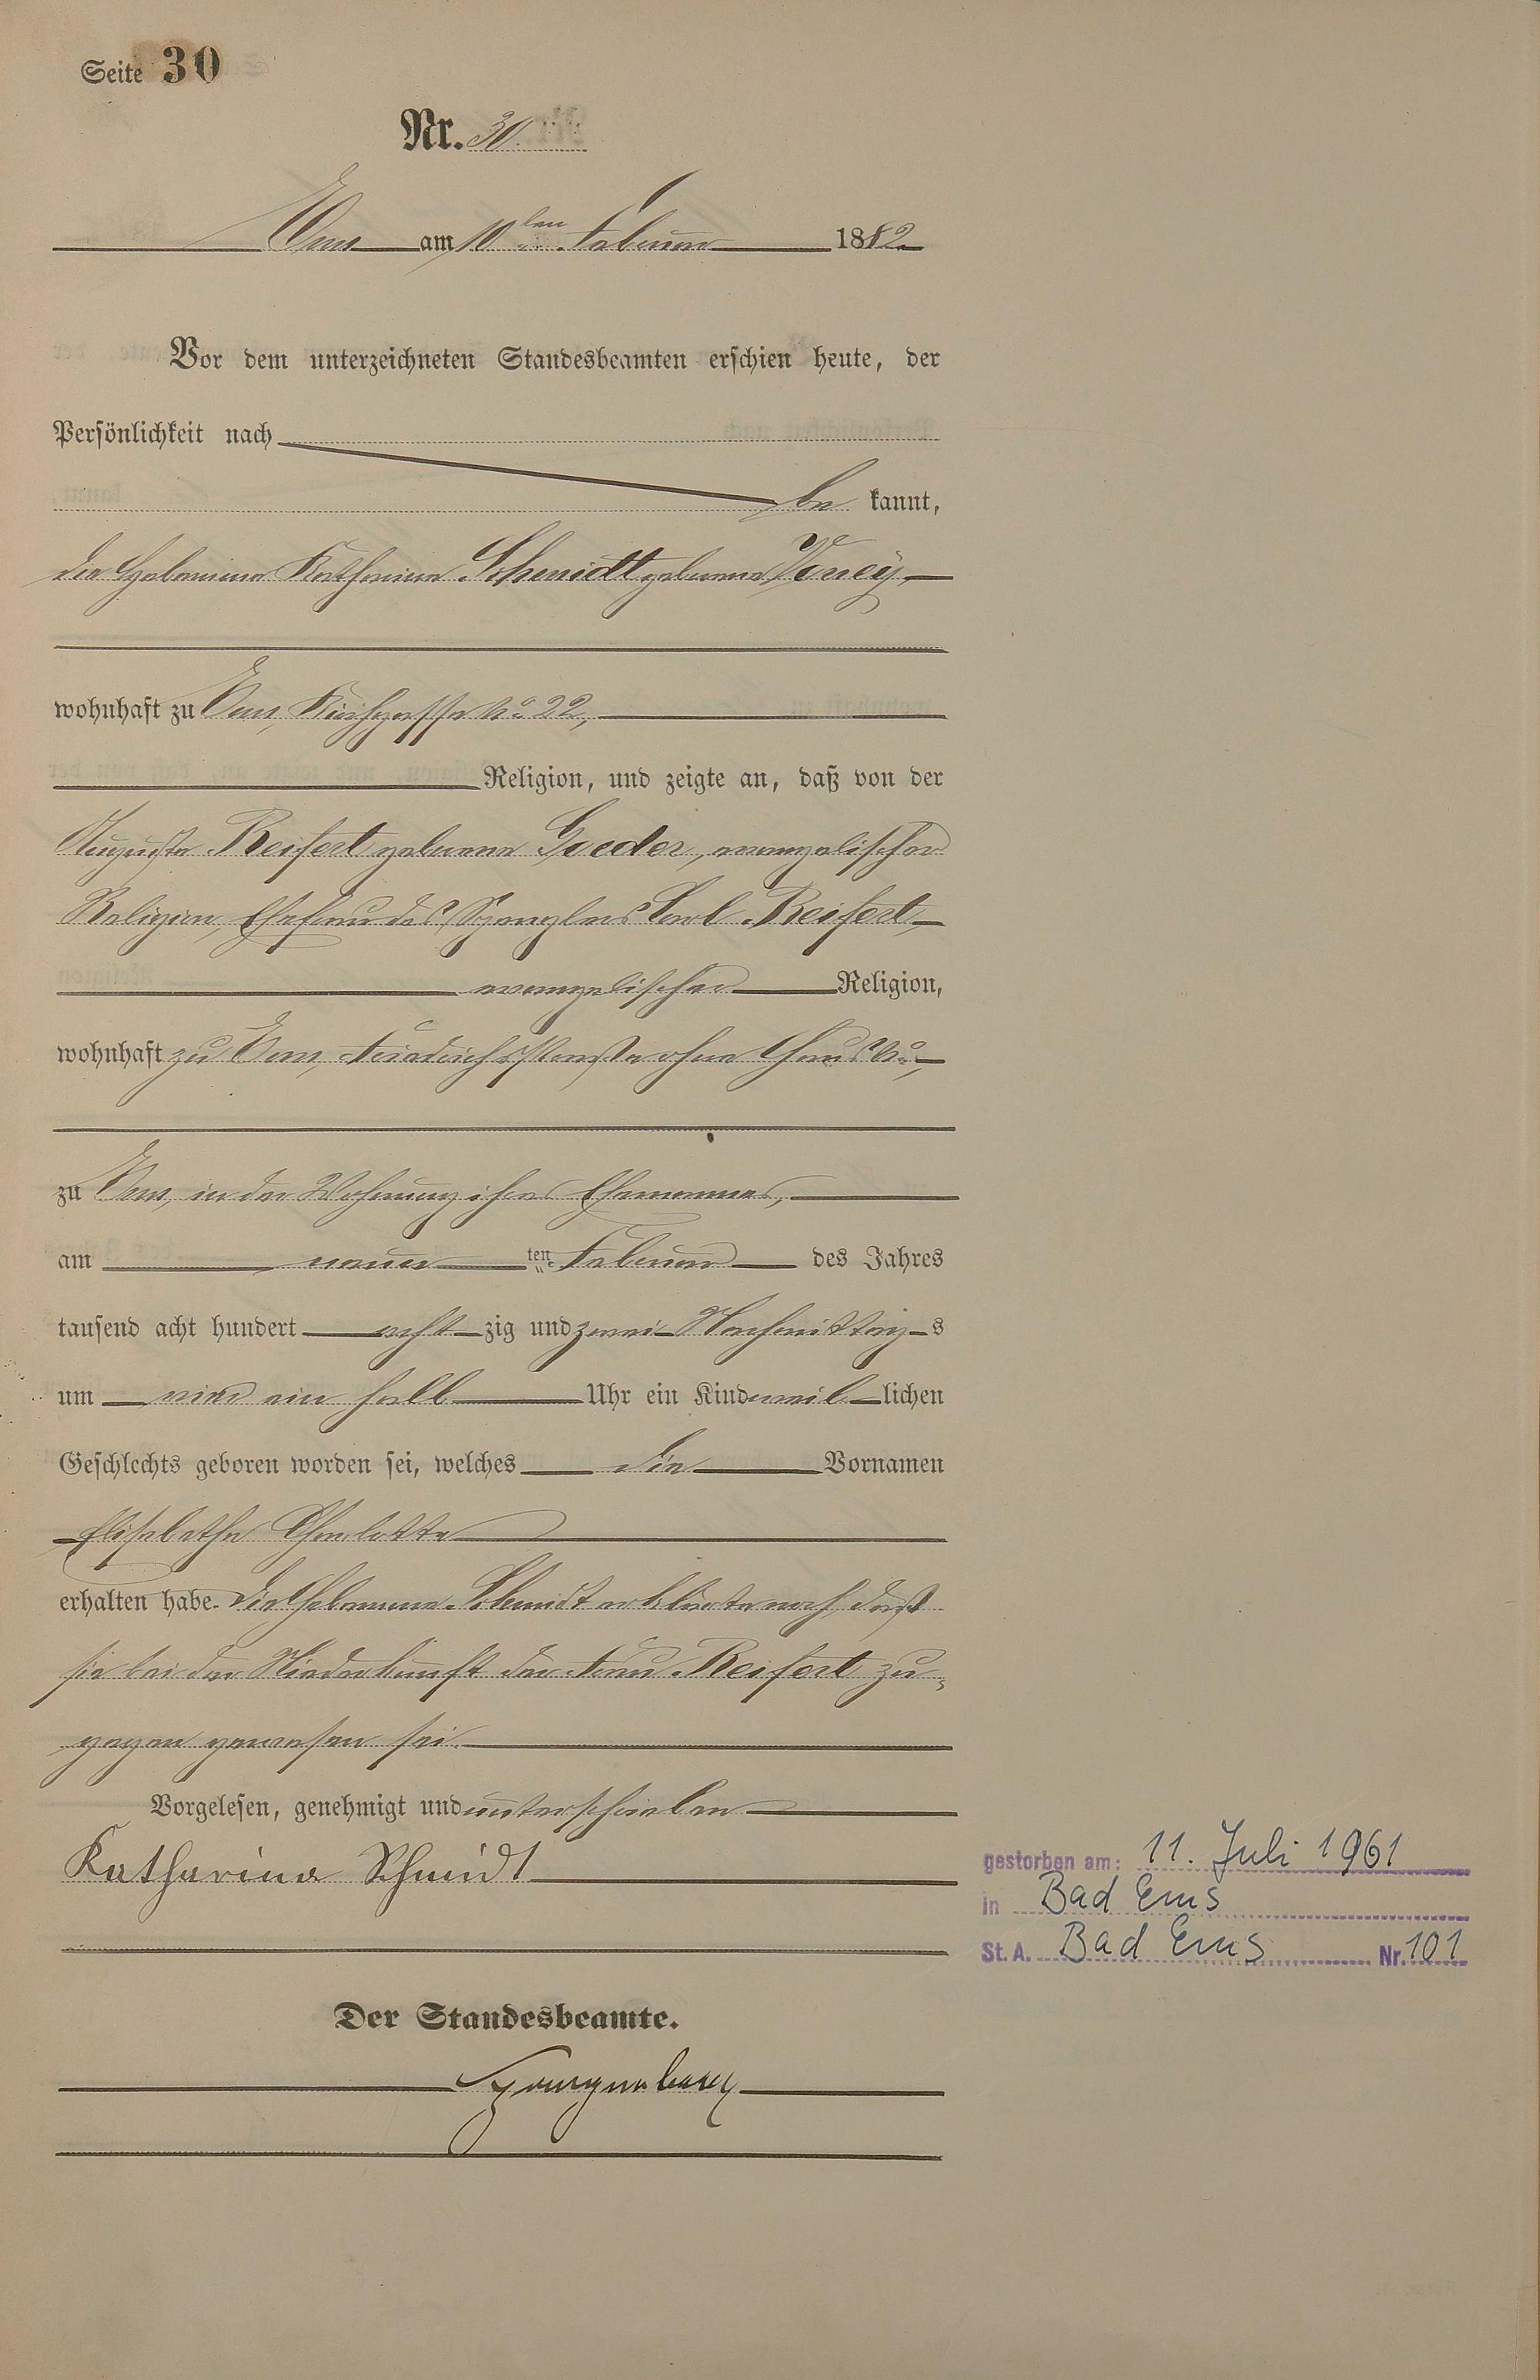 Seite 30
Nr. 30.
Ems am 10ten Februar 1882
Vor dem unterzeichneten Standesbeamten erschien heute, der
Persönlichkeit nach
be kannt,
die Hebamme Katharina Schmidt geborene
wohnhaft zu Ems, Kirchgasse No 22,
Religion, und zeigte an, daß von der
Auguste Reifert geborene Goeder, evangelischer
Religion, Ehefrau des Spenglers Carl Reifert
evangelischer Religion,
wohnhaft zu Ems, Friedrichsstraße ohne Haus No,
zu Ems, in der Wohnung ihres Ehemannes,
am neun ten Februar des Jahres
tausend acht hundert acht zig und zwei Nachmittag s
um vier ein halb Uhr ein Kind weib lichen
Geschlechts geboren worden sei, welches die Vornamen
Elisabetha Charlotte
erhalten habe. Die Hebamme Schmidt erklärte noch, daß
sie bei der Niederkunft der Frau Reifert zu-
gegen gewesen sei.
Vorgelesen, genehmigt und unterschrieben
Katharina Schmidt
gestorben am: 11. Juli 1961
in Bad Ems
St. A. Bad Ems Nr. 101
Der Standesbeamte.